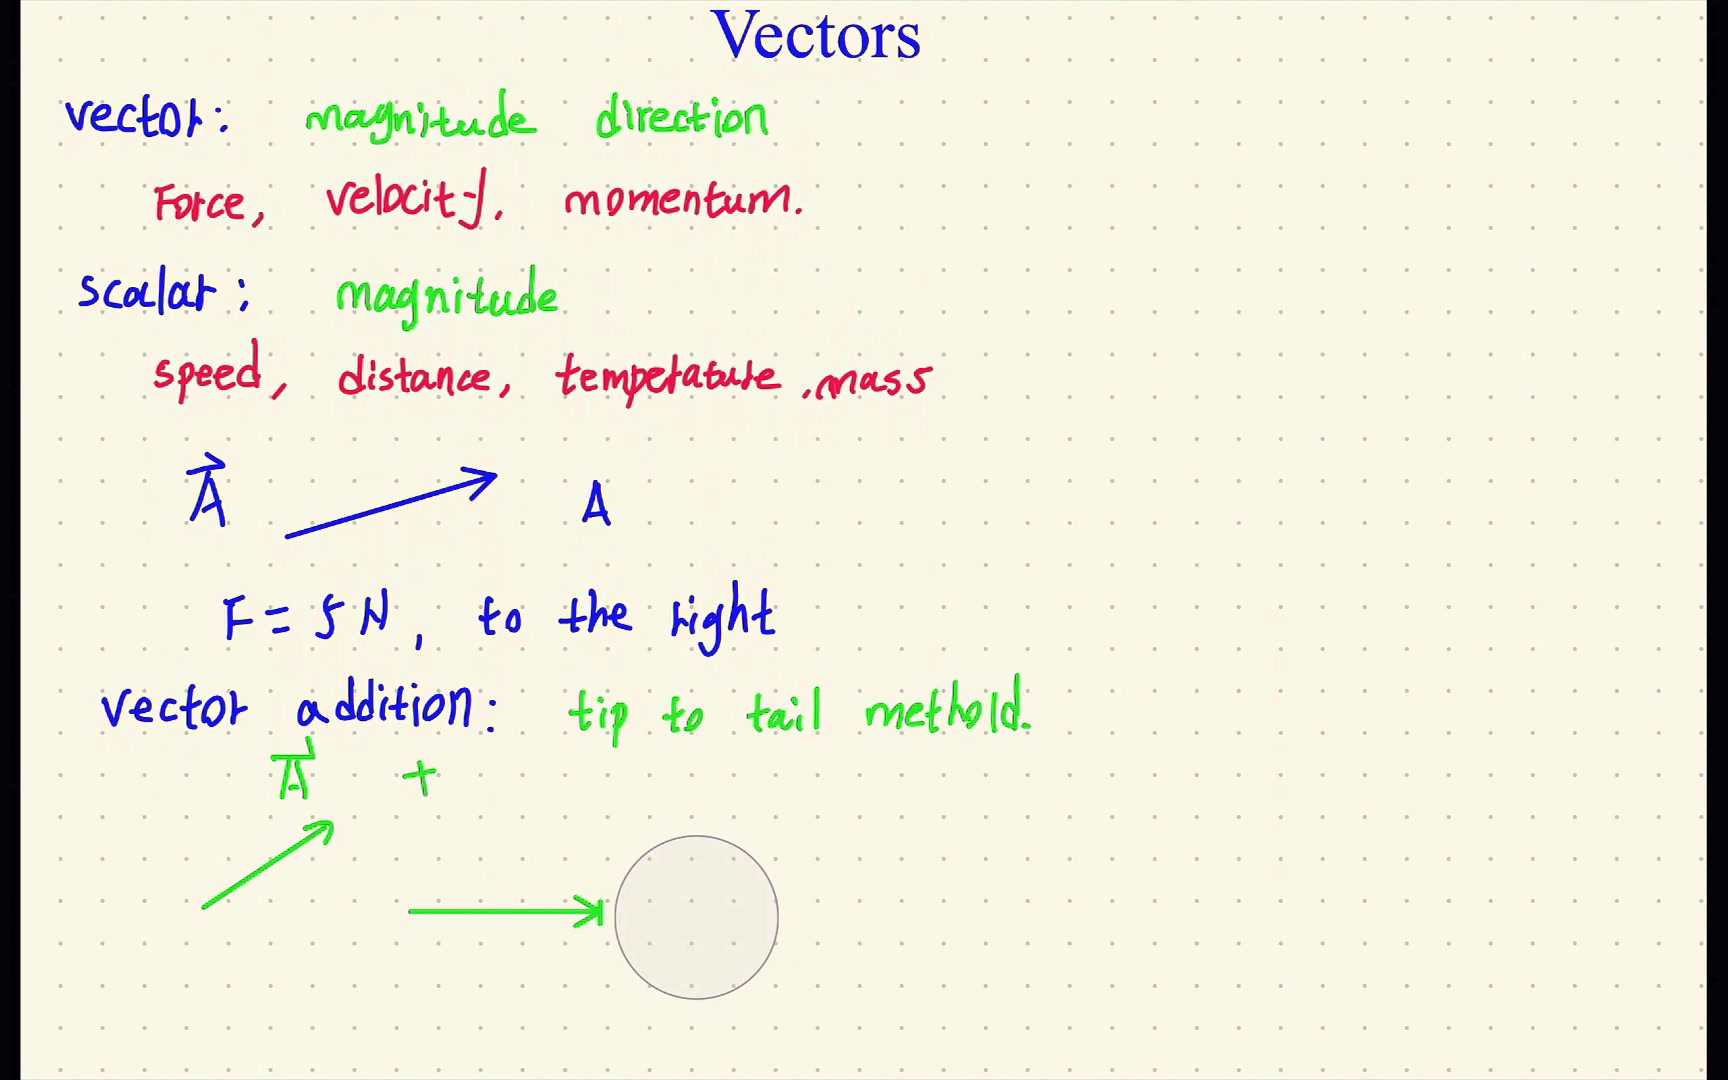 Vectors
vector: magnitude direction
Force, velocity, momentum.
scalar: magnitude
speed, distance, temperature, mass
A⃗ A
F = 5 N, to the right
vector addition: tip to tail methold.
A⃗ +